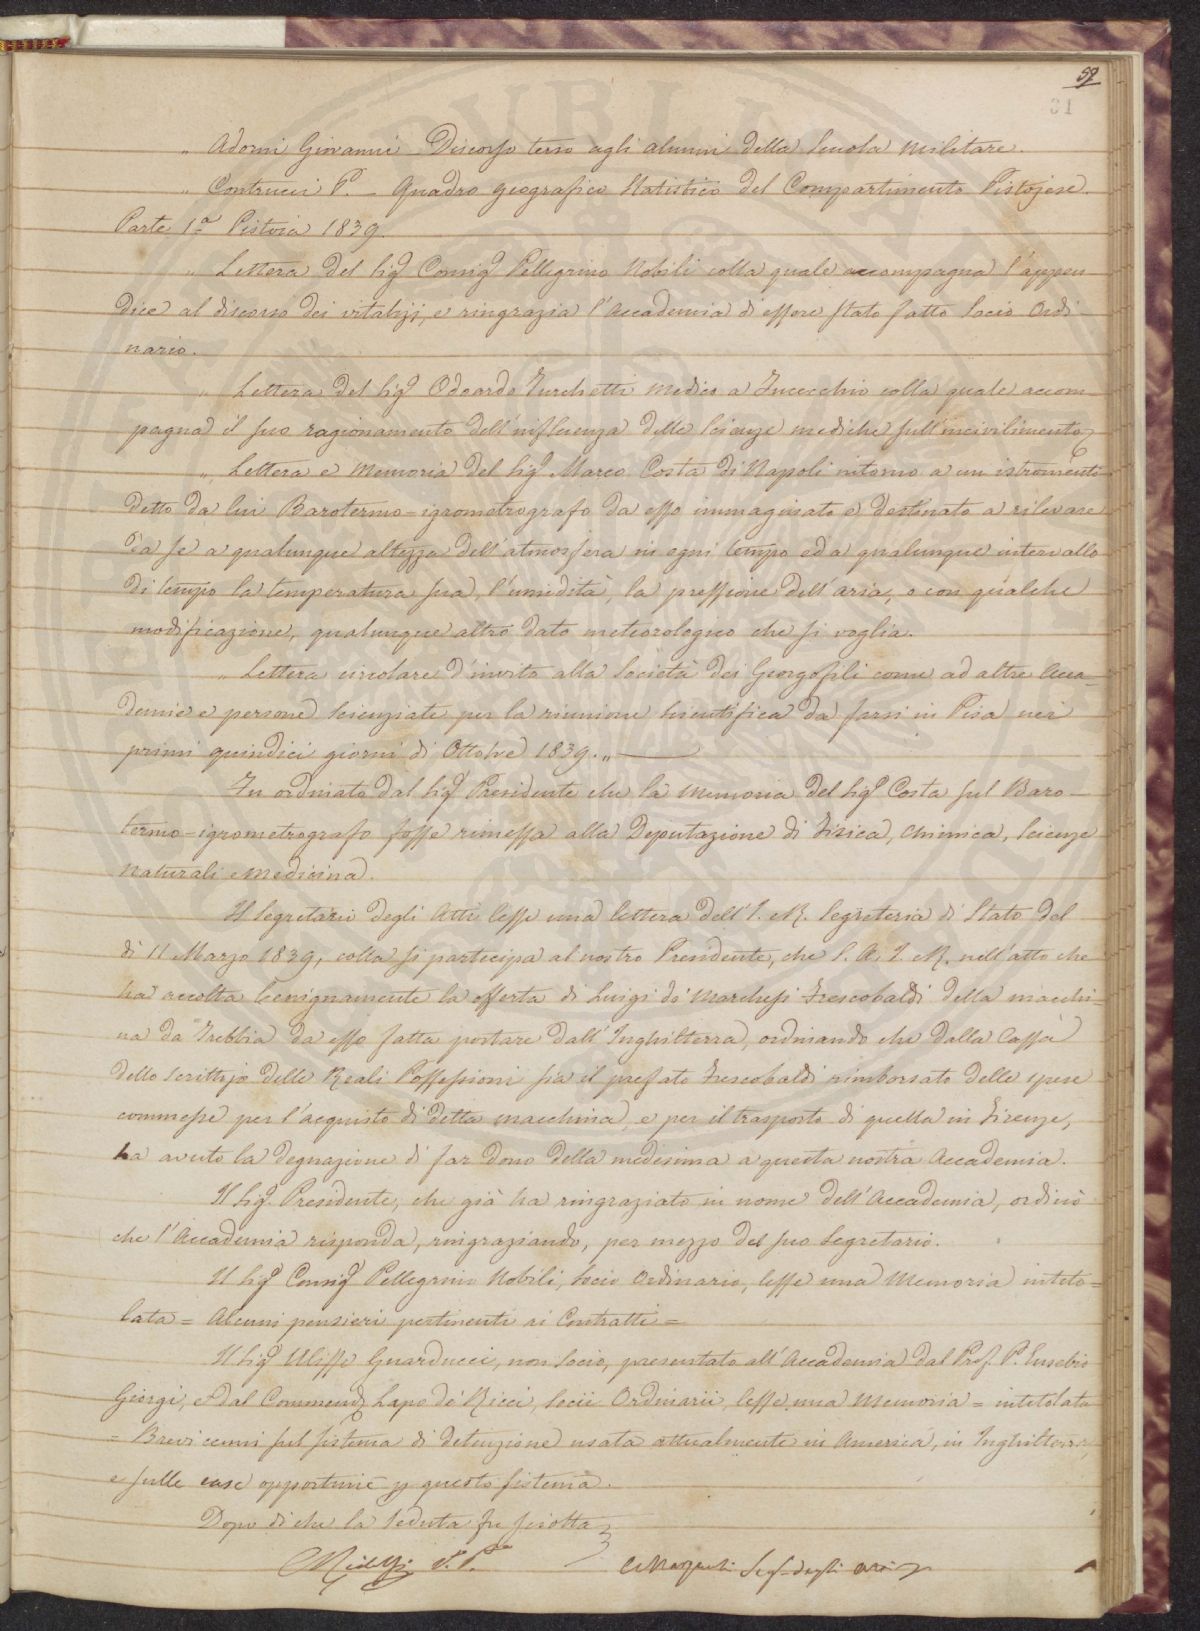 59
61
„ Adorni Giovanni – Discorso terzo agli alunni della Scuola Militare.
„ Contrucci P. – Quadro geografico Statistico del Compartimento Pistojese.
Parte 1.a Pistoia 1839.
„ Lettera del Sig.r Consig.r Pellegrino Nobili colla quale accompagna l'appen-
dice al discorso dei vitalizj, e ringrazia l'Accademia di essere stato fatto Socio Ordi-
nario.
„ Lettera del Sig.r Odoardo Turchetti Medico a Fucecchio colla quale accom-
pagna il suo ragionamento dell'influenza delle Scienze mediche sull'incivilimento
„ Lettera e Memoria del Sig.r Marco Costa di Napoli intorno a un istromento
detto da lui Barotermo-igrometrografo da esso immaginato e destinato a rilevare
da se a qualunque altezza dell'atmosfera in ogni tempo ed a qualunque intervallo
di tempo la temperatura sua, l'umidità, la pressione dell'aria, o con qualche
modificazione, qualunque altro dato meteorologico che si voglia.
„ Lettera circolare d'invito alla Società dei Georgofili come ad altre Acca-
demie e persone scienziate per la riunione scientifica da farsi in Pisa nei
primi quindici giorni di Ottobre 1839. „
Fu ordinato dal Sig.r Presidente che la Memoria del Sig.r Costa sul Baro-
termo-igrometrografo fosse rimessa alla Deputazione di Fisica, Chimica, Scienze
Naturali e Medicina.
Il Segretario degli Atti lesse una lettera dell'I. e R. Segreteria di Stato del
dì 11 Marzo 1839, colla si partecipa al nostro Presidente, che S. A. I. e R. nell'atto che
ha accolta benignamente la offerta di Luigi de' Marchesi Frescobaldi della macchi-
na da Trebbia da esso fatta portare dall'Inghilterra, ordinando che dalla Cassa
dello Scrittojo delle Reali Possessioni sia il prefato Frescobaldi rimborsato delle spese
commesse per l'acquisto di detta macchina, e per il trasporto di quella in Firenze,
ha avuto la degnazione di far dono della medesima a questa nostra Accademia.
Il Sig.r Presidente, che già ha ringraziato in nome dell'Accademia, ordinò
che l'Accademia risponda, ringraziando, per mezzo del suo Segretario.
Il Sig.r Consig.r Pellegrino Nobili, Socio Ordinario, lesse una Memoria intito-
lata = Alcuni pensieri pertinenti ai Contratti =
Il Sig.r Ulisse Guarducci, non Socio, presentato all'Accademia dal Prof. P. Eusebio
Giorgi, e dal Commend.r Lapo de' Ricci, Socii Ordinarii, lesse una Memoria = intitolata
= Brevi cenni sul sistema di detenzione usata attualmente in America, in Inghilterra,
e sulle case opportune p questo sistema.
Dopo di che la Seduta fu sciolta
Ridolfi P.
Seg. degli Atti